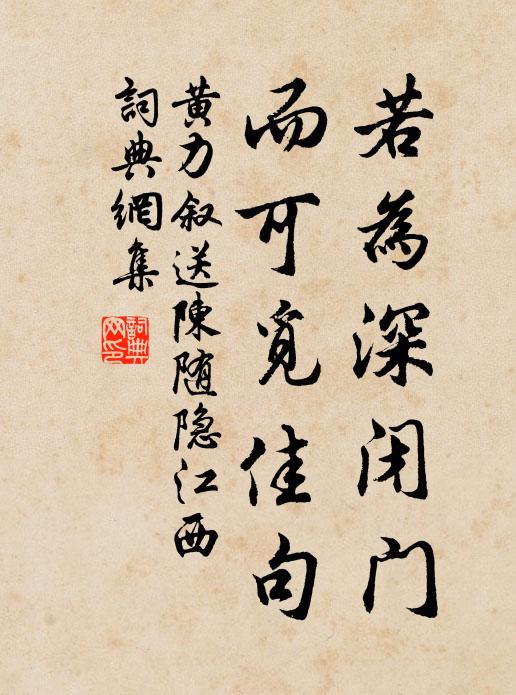 若為深闭门
而可覓佳句
黄力叙送陳随隐江西
詞典網集
詞典网印